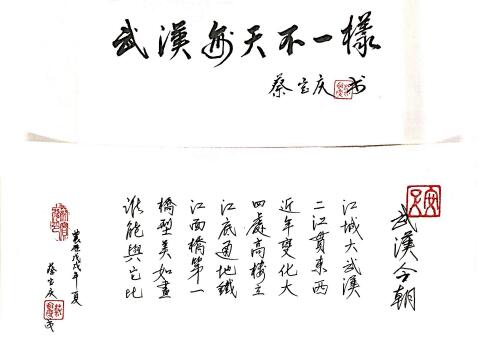 武漢每天不一樣
蔡宝庆书
武漢今朝
江城大武漢
二江貫東西
近年變化大
四處高樓立
江底通地鐵
江面橋第一
橋型美如畫
誰能與它比
農歷戊戌年夏
蔡宝庆